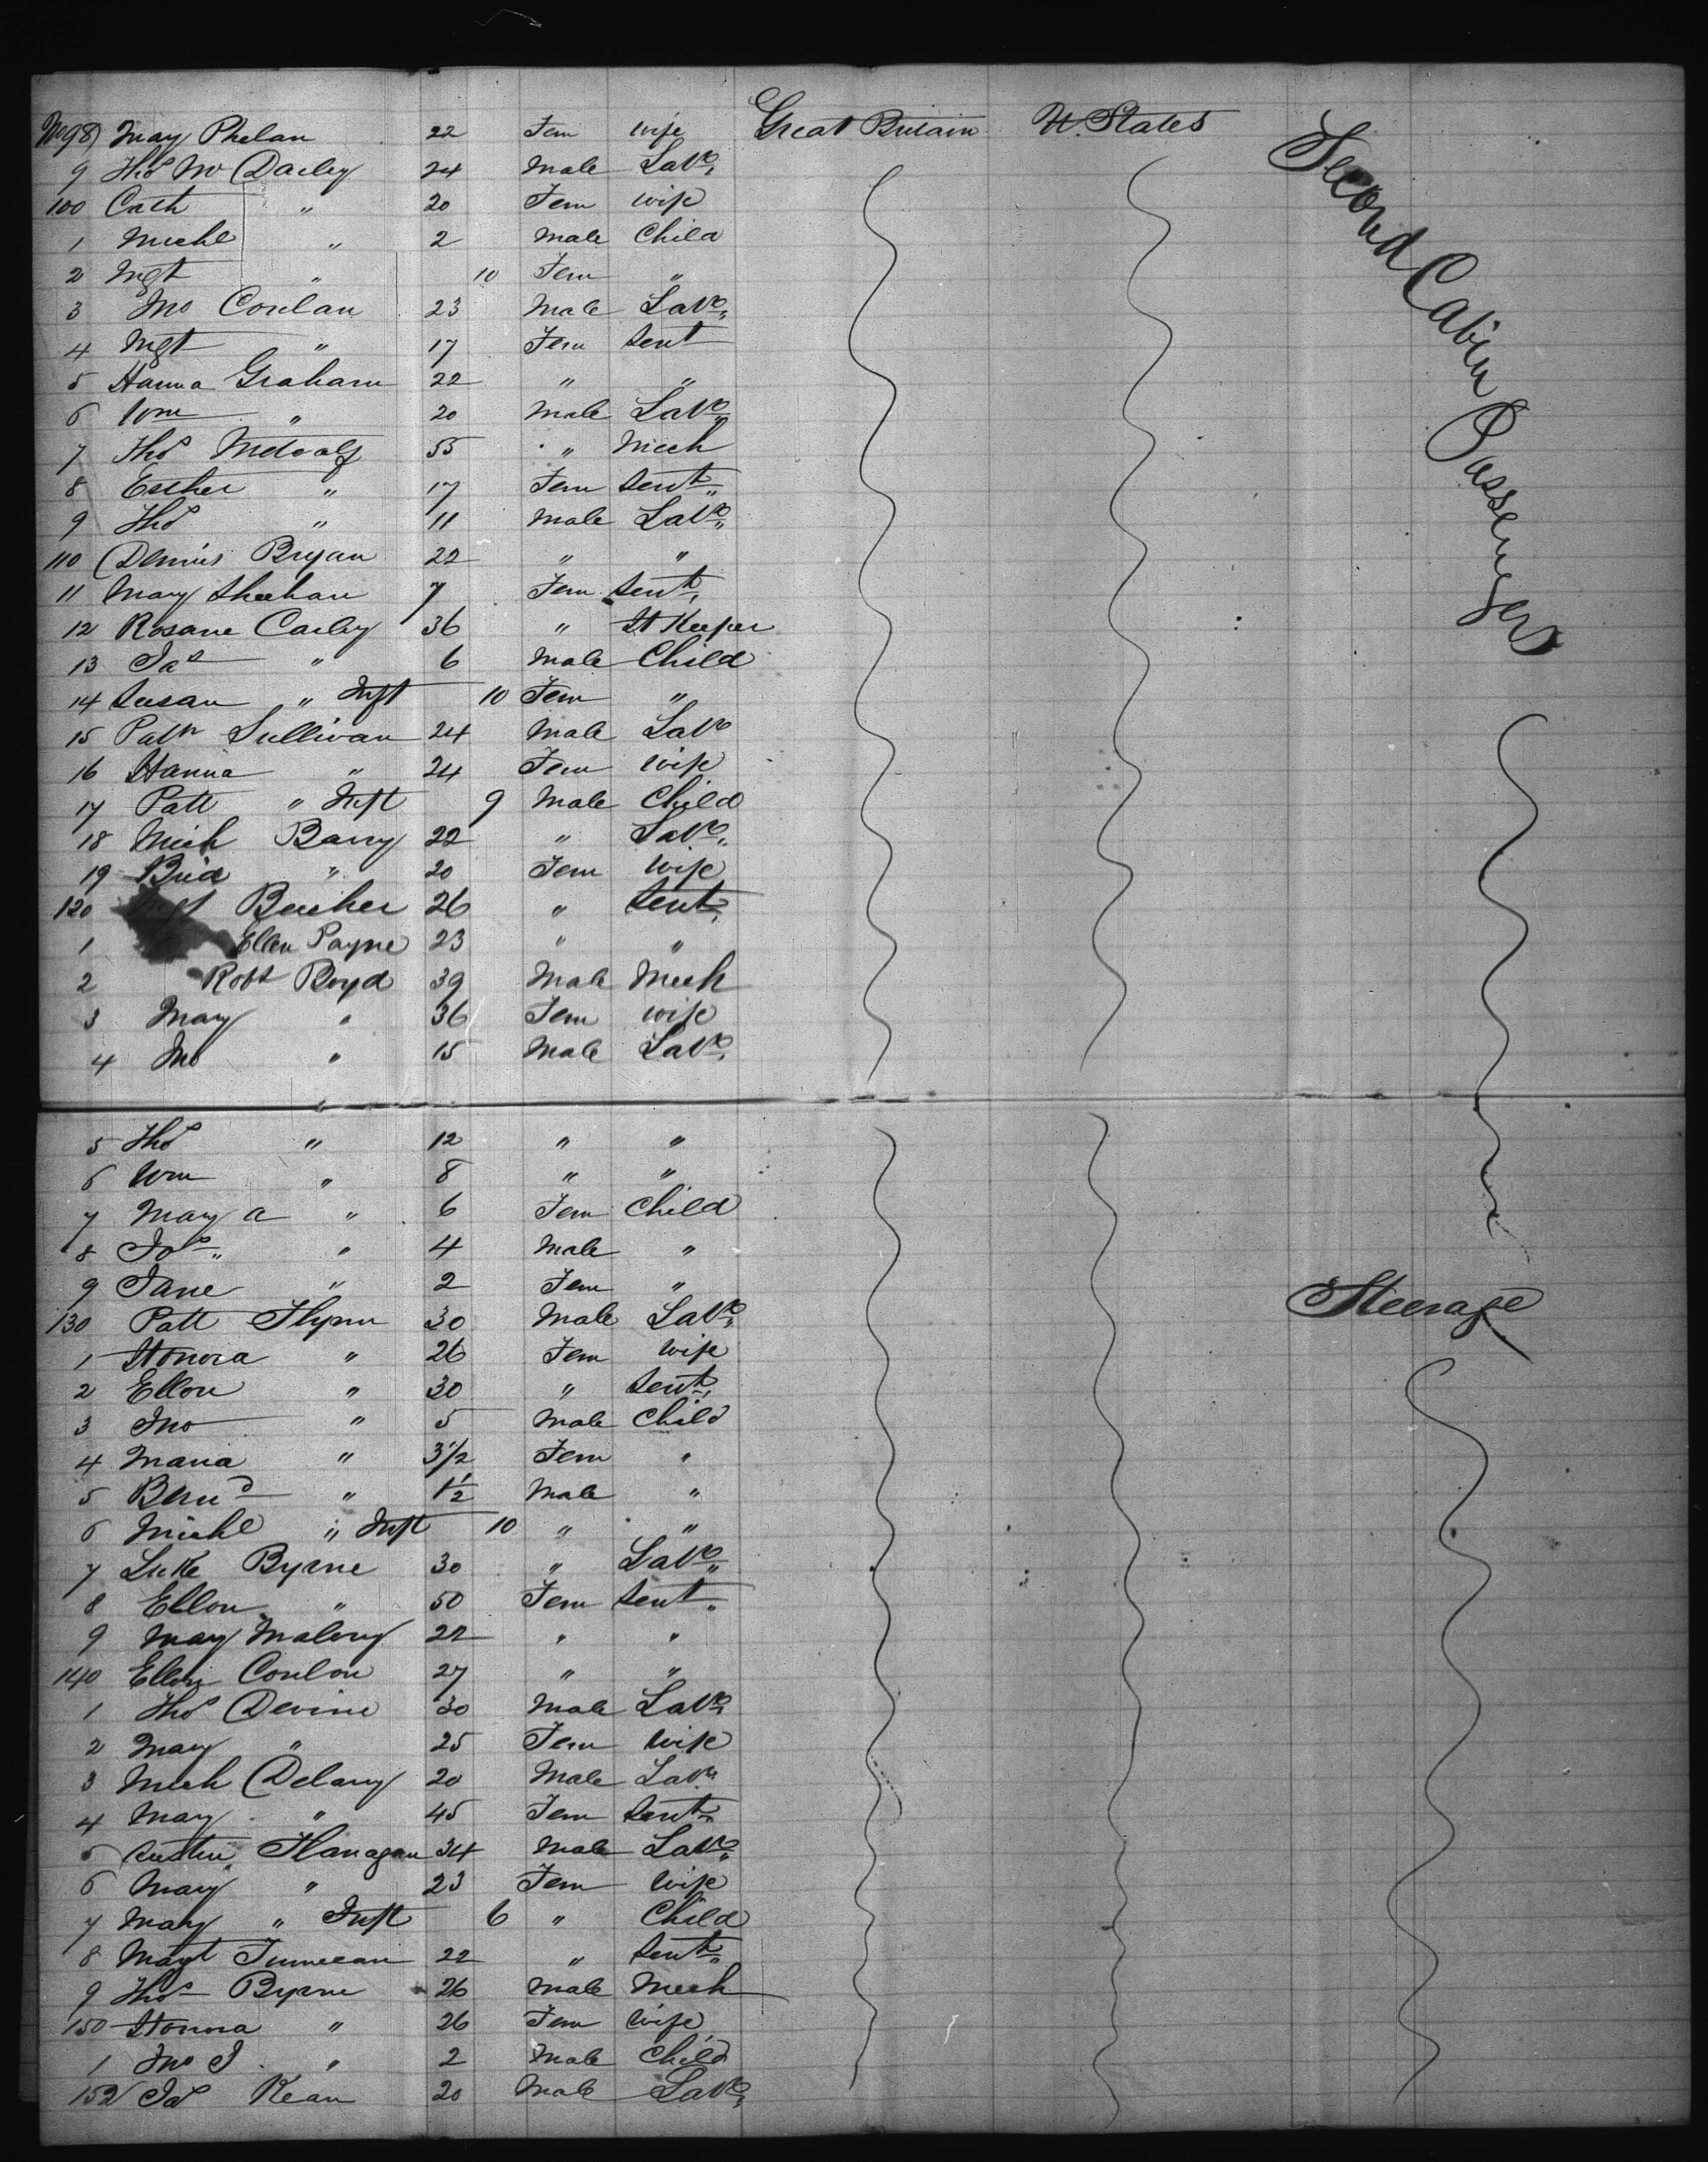 No 98) Mary Phelan 22 Fem wife Great Britain U States Second Cabin Passengers
9 Thos Mc Dailey 24 Male Labr
100 Cath " 20 Fem wife
1 Michl " 2 Male Child
2 Mgt " 10 Fem "
3 Jno Conlan 23 Male Labr
4 Mgt " 17 Fem Servt
5 Hanna Graham 22 " "
6 Wm " 20 Male Labr
7 Thos Metcalf 55 " Mech
8 Esther " 17 Fem Servt
9 Thos " 11 Male Labr
110 Dennis Bryan 22 " "
11 Mary Sheehan 7 Fem Servt
12 Rosane Carley 36 " St Keeper
13 Jas " 6 Male Child
14 Susan " Inft 10 Fem "
15 Patk Sullivan 24 Male Labr
16 Hanna " 24 Fem wife
17 Patt " Inft 9 Male Child
18 Mich Barry 22 " Labr
19 Brid " 20 Fem wife
120 Mgt 26 " Servt
1 Ellen Payne 23 " "
2 Robt Boyd 39 Male Mech
3 Mary " 36 Fem wife
4 Jno " 15 Male Labr
5 Thos " 12 " "
6 Wm " 8 " "
7 Mary A " 6 Fem Child
8 Jos " 4 Male "
9 Jane " 2 Fem "
130 Patt Flynn 30 Male Labr Steerage
1 Honora " 26 Fem wife
2 Ellen " 30 " Servt
3 Jno " 5 Male Child
4 Maria " 3 1/2 Fem "
5 Bernd " 1 1/2 Male "
6 Michl " Inft 10 " "
7 Luke Byrne 30 " Labr
8 Ellen " 50 Fem Servt
9 Mary Malony 22 " "
140 Ellen Conlon 27 " "
1 Thos Devine 30 Male Labr
2 Mary " 25 Fem wife
3 Mich Delany 20 Male Labr
4 Mary " 45 Fem Servt
5 Austin Flanagan 34 Male Labr
6 Mary " 23 Fem wife
7 Mary " Inft 6 " Child
8 Margt 22 " Servt
9 Thos Byrne 26 Male Mech
150 Honora " 26 Fem wife
1 Jno J " 2 Male Child
152 Jas Kean 20 Male Labr